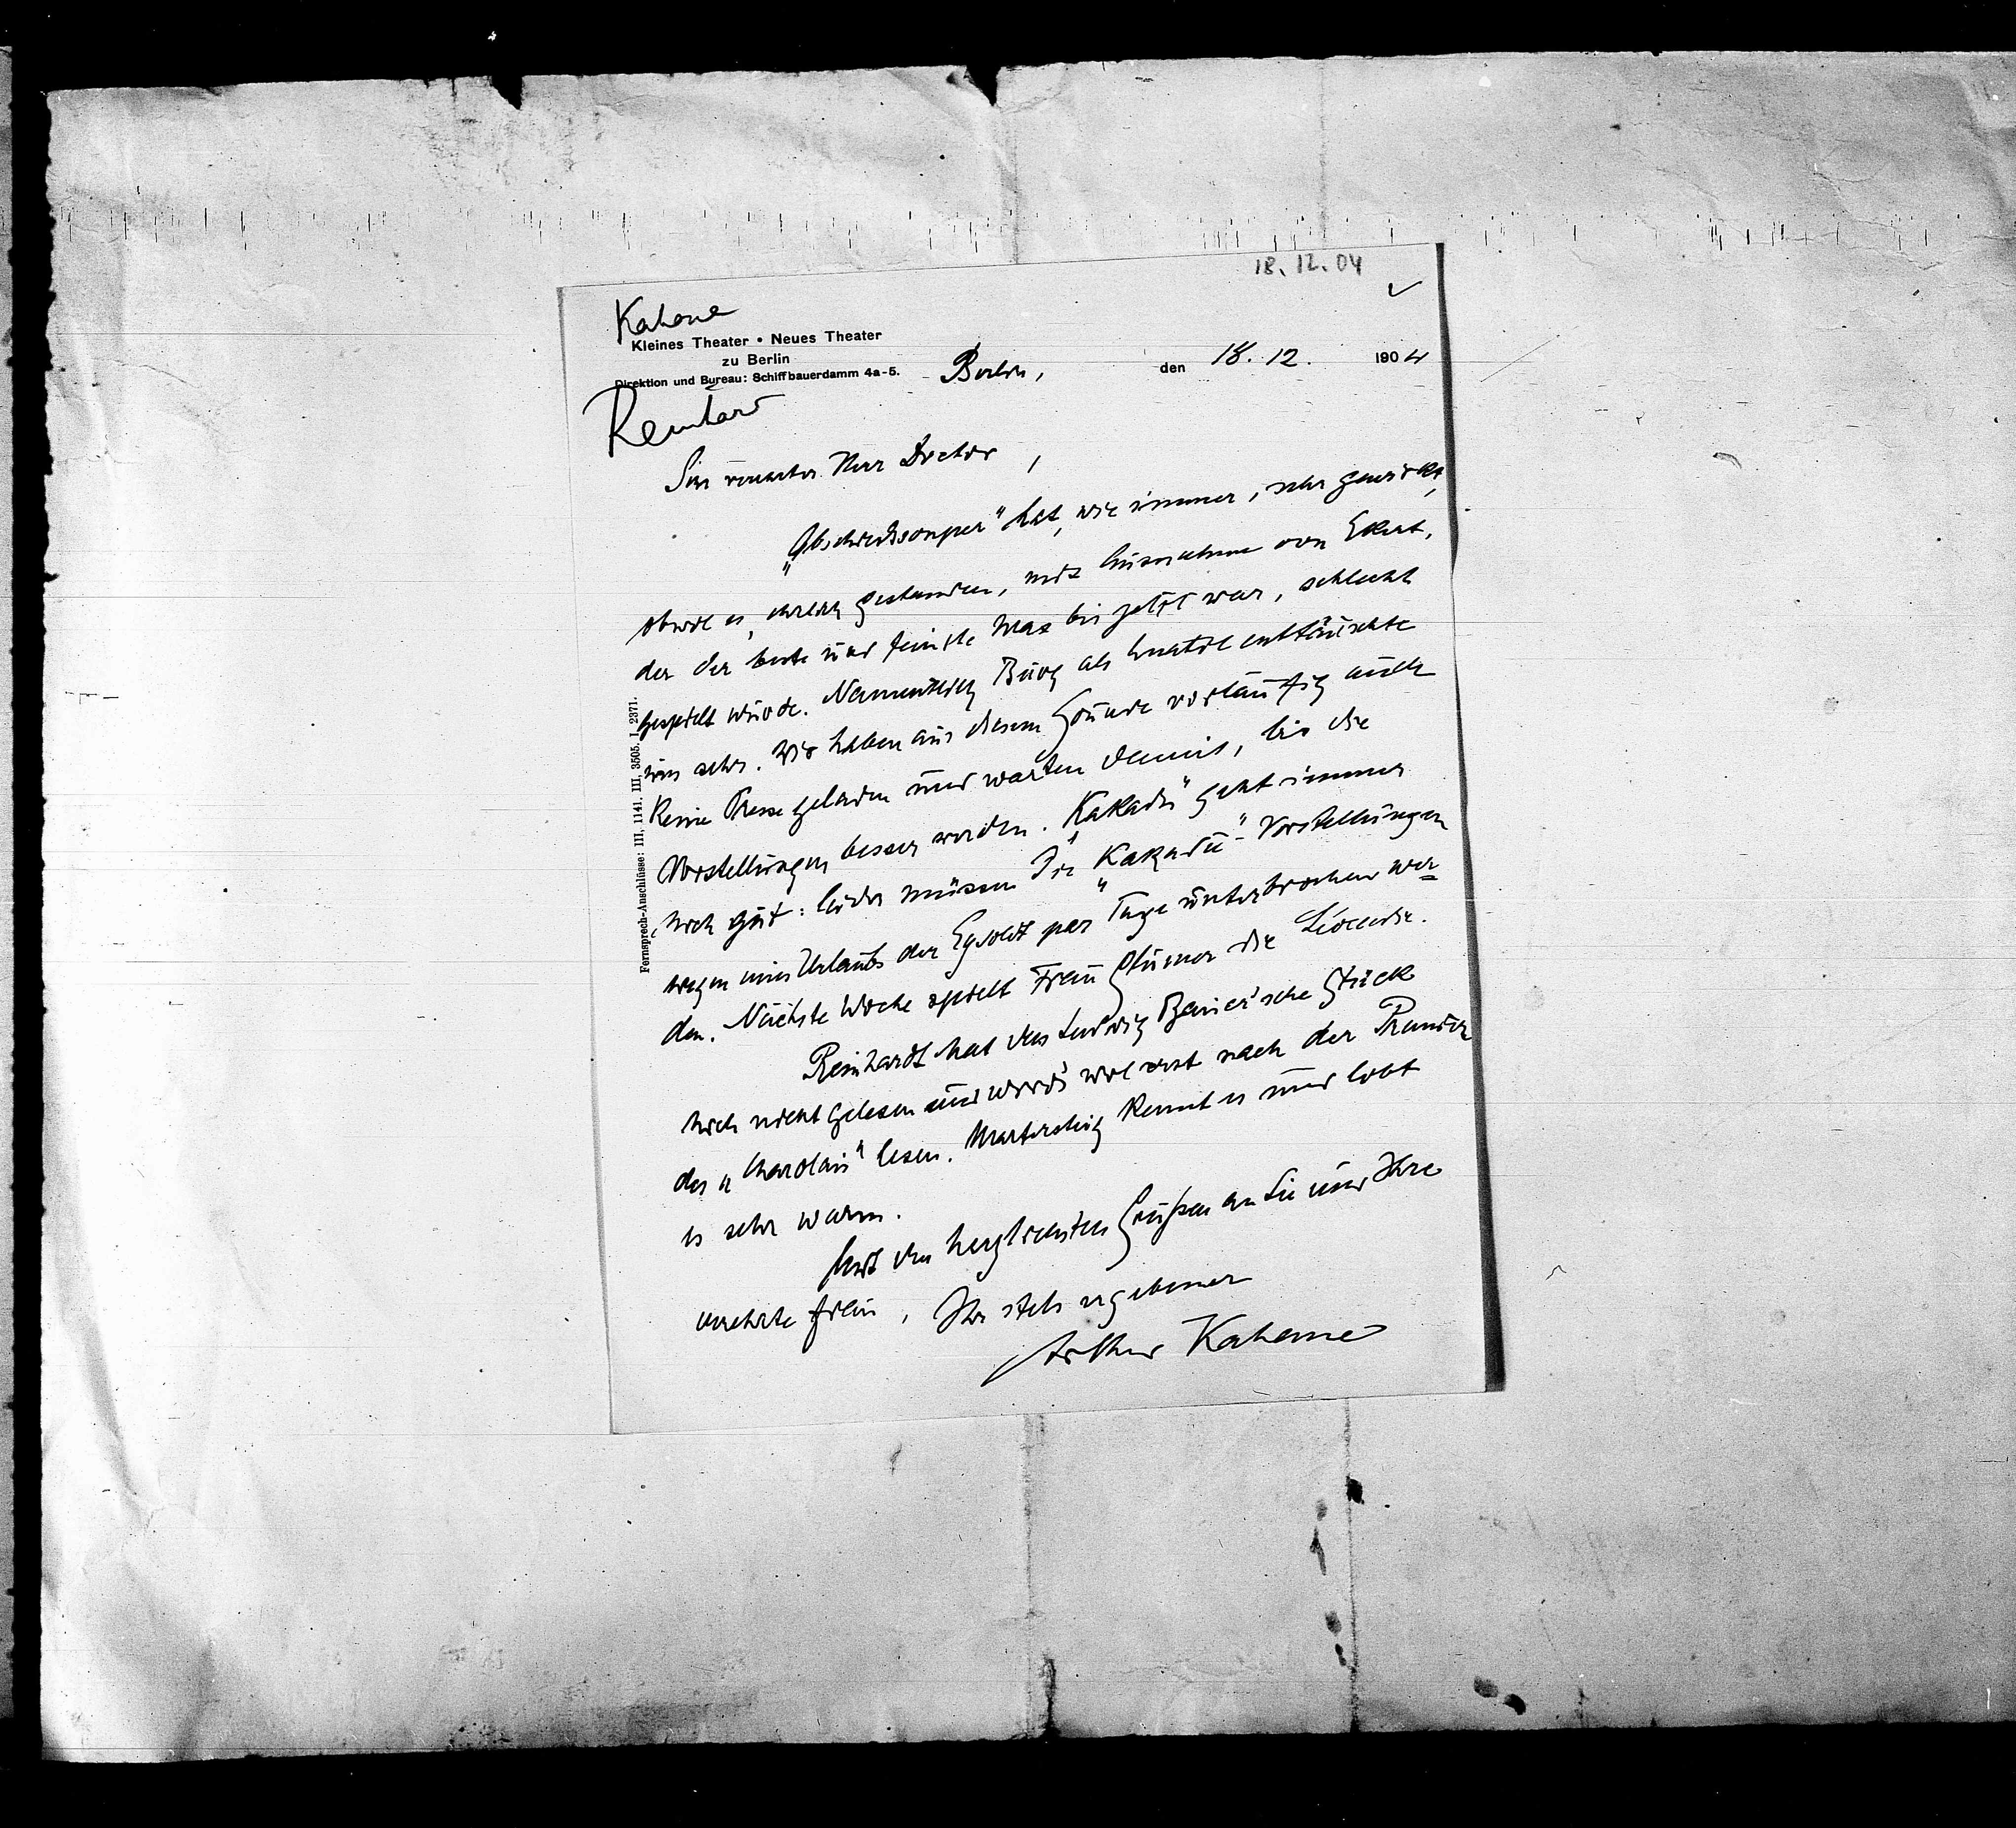 18.12.04
Kahane
Kleines Theater • Neues Theater
zu Berlin
Direktion und Bureau: Schiffbauerdamm 4a-5.
Berlin, den 18. 12. 1904
Reinhard
Sehr verehrter Herr Doctor,
„Abschiedssouper" hat, wie immer, sehr gewirkt,
obwol es, ehrlich gestanden, mit Ausnahme von Ekert,
der der beste und feinste Max bis jetzt war, schlecht
gespielt wurde. Namentlich Burg als Anatol enttäuschte
uns sehr. Wir haben aus diesem Grunde vorläufig auch
keine Presse geladen und warten damit, bis die
Vorstellungen besser werden. „Kakadu" geht immer
noch gut: leider müssen die „Kakadu"-Vorstellungen
wegen eines Urlaubs der Eysoldt par Tage unterbrochen wer=
den. Nächste Woche spielt Frau Glümer die Léocadie.
Reinhardt hat das Ludwig Bauer'sche Stück
noch nicht gelesen und wird's wol erst nach der Première
des „Charolais" lesen. Martersteig kennt es und lobt
es sehr warm.
Mit den herzlichsten Grüßen an Sie und Ihre
verehrte Frau, Ihr stets ergebener
Arthur Kahane
Fernsprech-Anschlüsse: III, 1141. III, 3505. I, 2371.